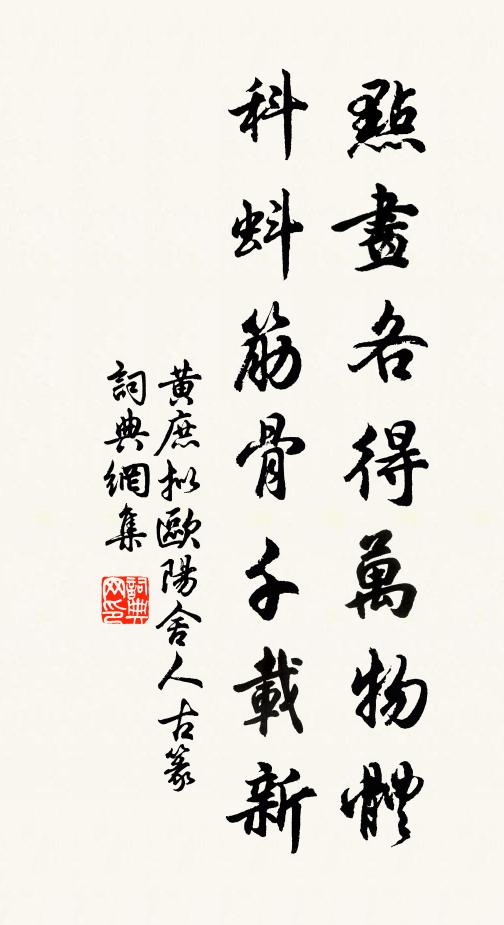 點畫各得萬物體
科蚪筋骨千載新
黃庶拟歐陽舍人古篆
詞典網集
詞典網印